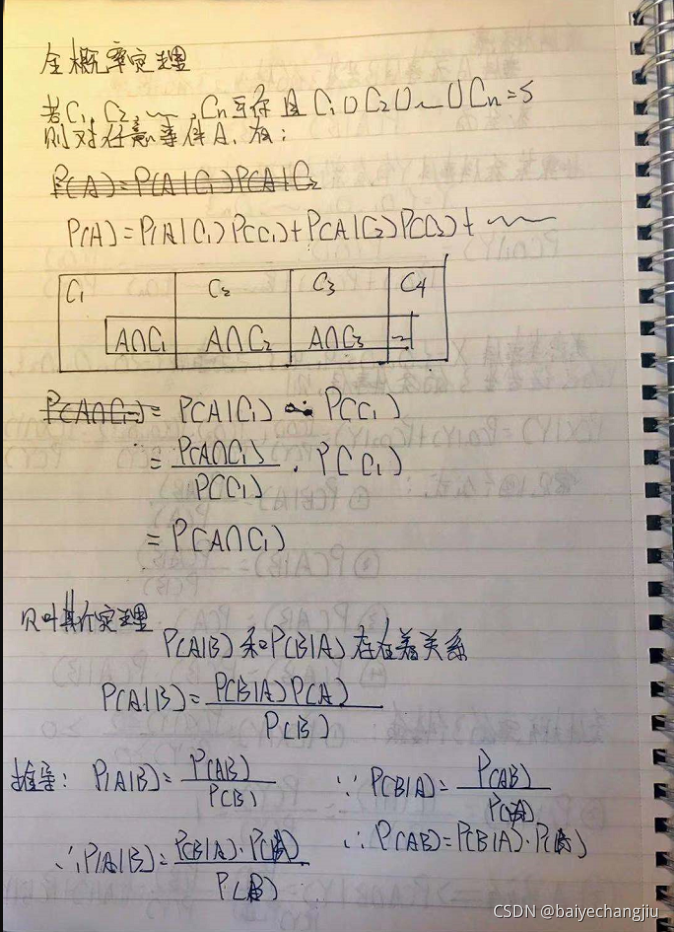 全概率定理
若C₁, C₂, ~, Cn互斥且 C₁∪C₂∪~∪Cn=S
则对任意事件A,有:
P(A)=P(A|C₁)P(A|C₂
P(A)=P(A|C₁)P(C₁)+P(A|C₂)P(C₂)+ ~~
C₁ C₂ C₃ C4
A∩C₁ A∩C₂ A∩C₃
P(A∩C₁)= P(A|C₁) · P(C₁)
= P(A∩C₁)/P(C₁) · P(C₁)
= P(A∩C₁)
贝叶斯定理
P(A|B)和P(B|A)存在着关系
P(A|B)= P(B|A)P(A)/P(B)
推导: P(A|B)= P(AB)/P(B) ∵ P(B|A)= P(AB)/P(A)
∴P(A|B)= P(B|A)·P(A)/P(B) ∴ P(AB)=P(B|A)·P(A)
CSDN @baiyechangjiu